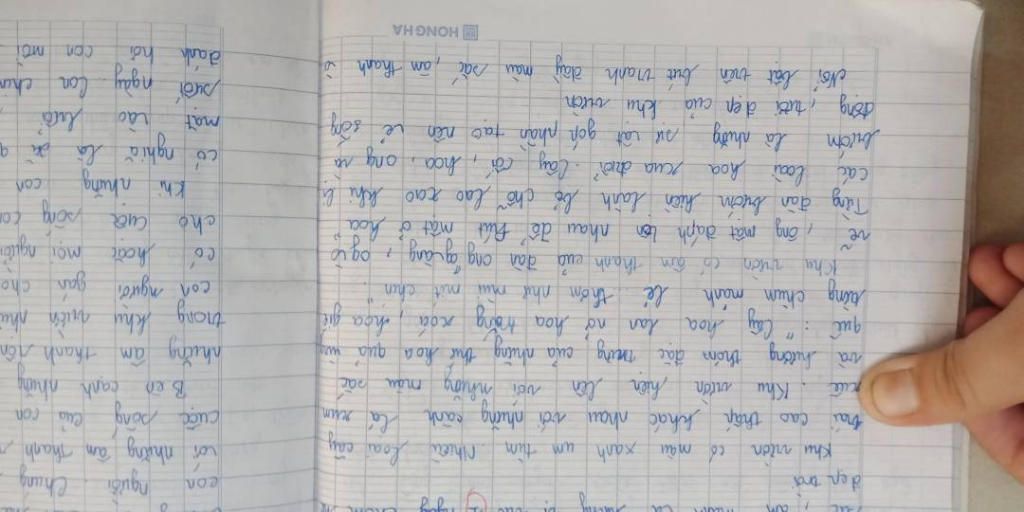 đẹp trời
Khu vườn có màu xanh um tùm. Nhiều loại cây
trái cao thấp khác nhau với những cành lá xum
xuê. Khu vườn hiện lên với những màu sắc
và hương thơm đặc trưng của những thứ hoa quả
quê: "Cây hoa lan nở hoa trắng xóa, hoa giẻ
từng chùm mảnh dẻ. thơm như mùi mít chín.
Khu vườn có âm thanh của đàn ong quàng, ong vò
vẽ, ong mật đánh lộn nhau để hút mật ở hoa
Từng đàn bướm hiền lành bỏ chỗ lao xao khi bị
các loài hoa xua đuổi. Cây, cối, hoa, ong và
bướm là những sự vật góp phần tạo nên vẻ sống
động, tươi đẹp của khu vườn
Nổi bật trên bức tranh đầy màu sắc, âm thanh và
HONG HA
con người. Chung
với những âm thanh
cuộc sống của con
Bên cạnh những
những âm thanh rộn
trong khu vườn như
con người gắn cho
có hoặc mọi người
cho cuộc sống con
Khi những con
có nghĩa là
mặt vào lưới
ngày con chim
đánh hơi con mồi